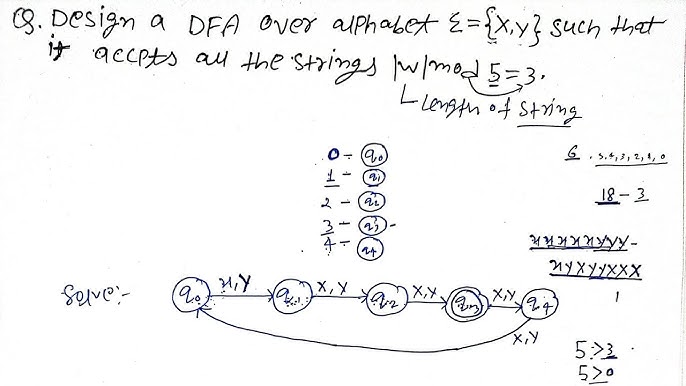 Q. Design a DFA over alphabet Σ={X,Y} such that
it accpts all the strings |w| mod 5=3.
Length of string
0 - q0
1 - q1
2 - q2
3 - q3 -
4 - q4
6 . 5,4,3,2,1,0
18 - 3
xxxxxyyy -
xyxyyxxx
1
Solve:-
q0 x,y q1 X,Y q2 X,Y q3 X,Y q4
X,Y
5>3
5>0